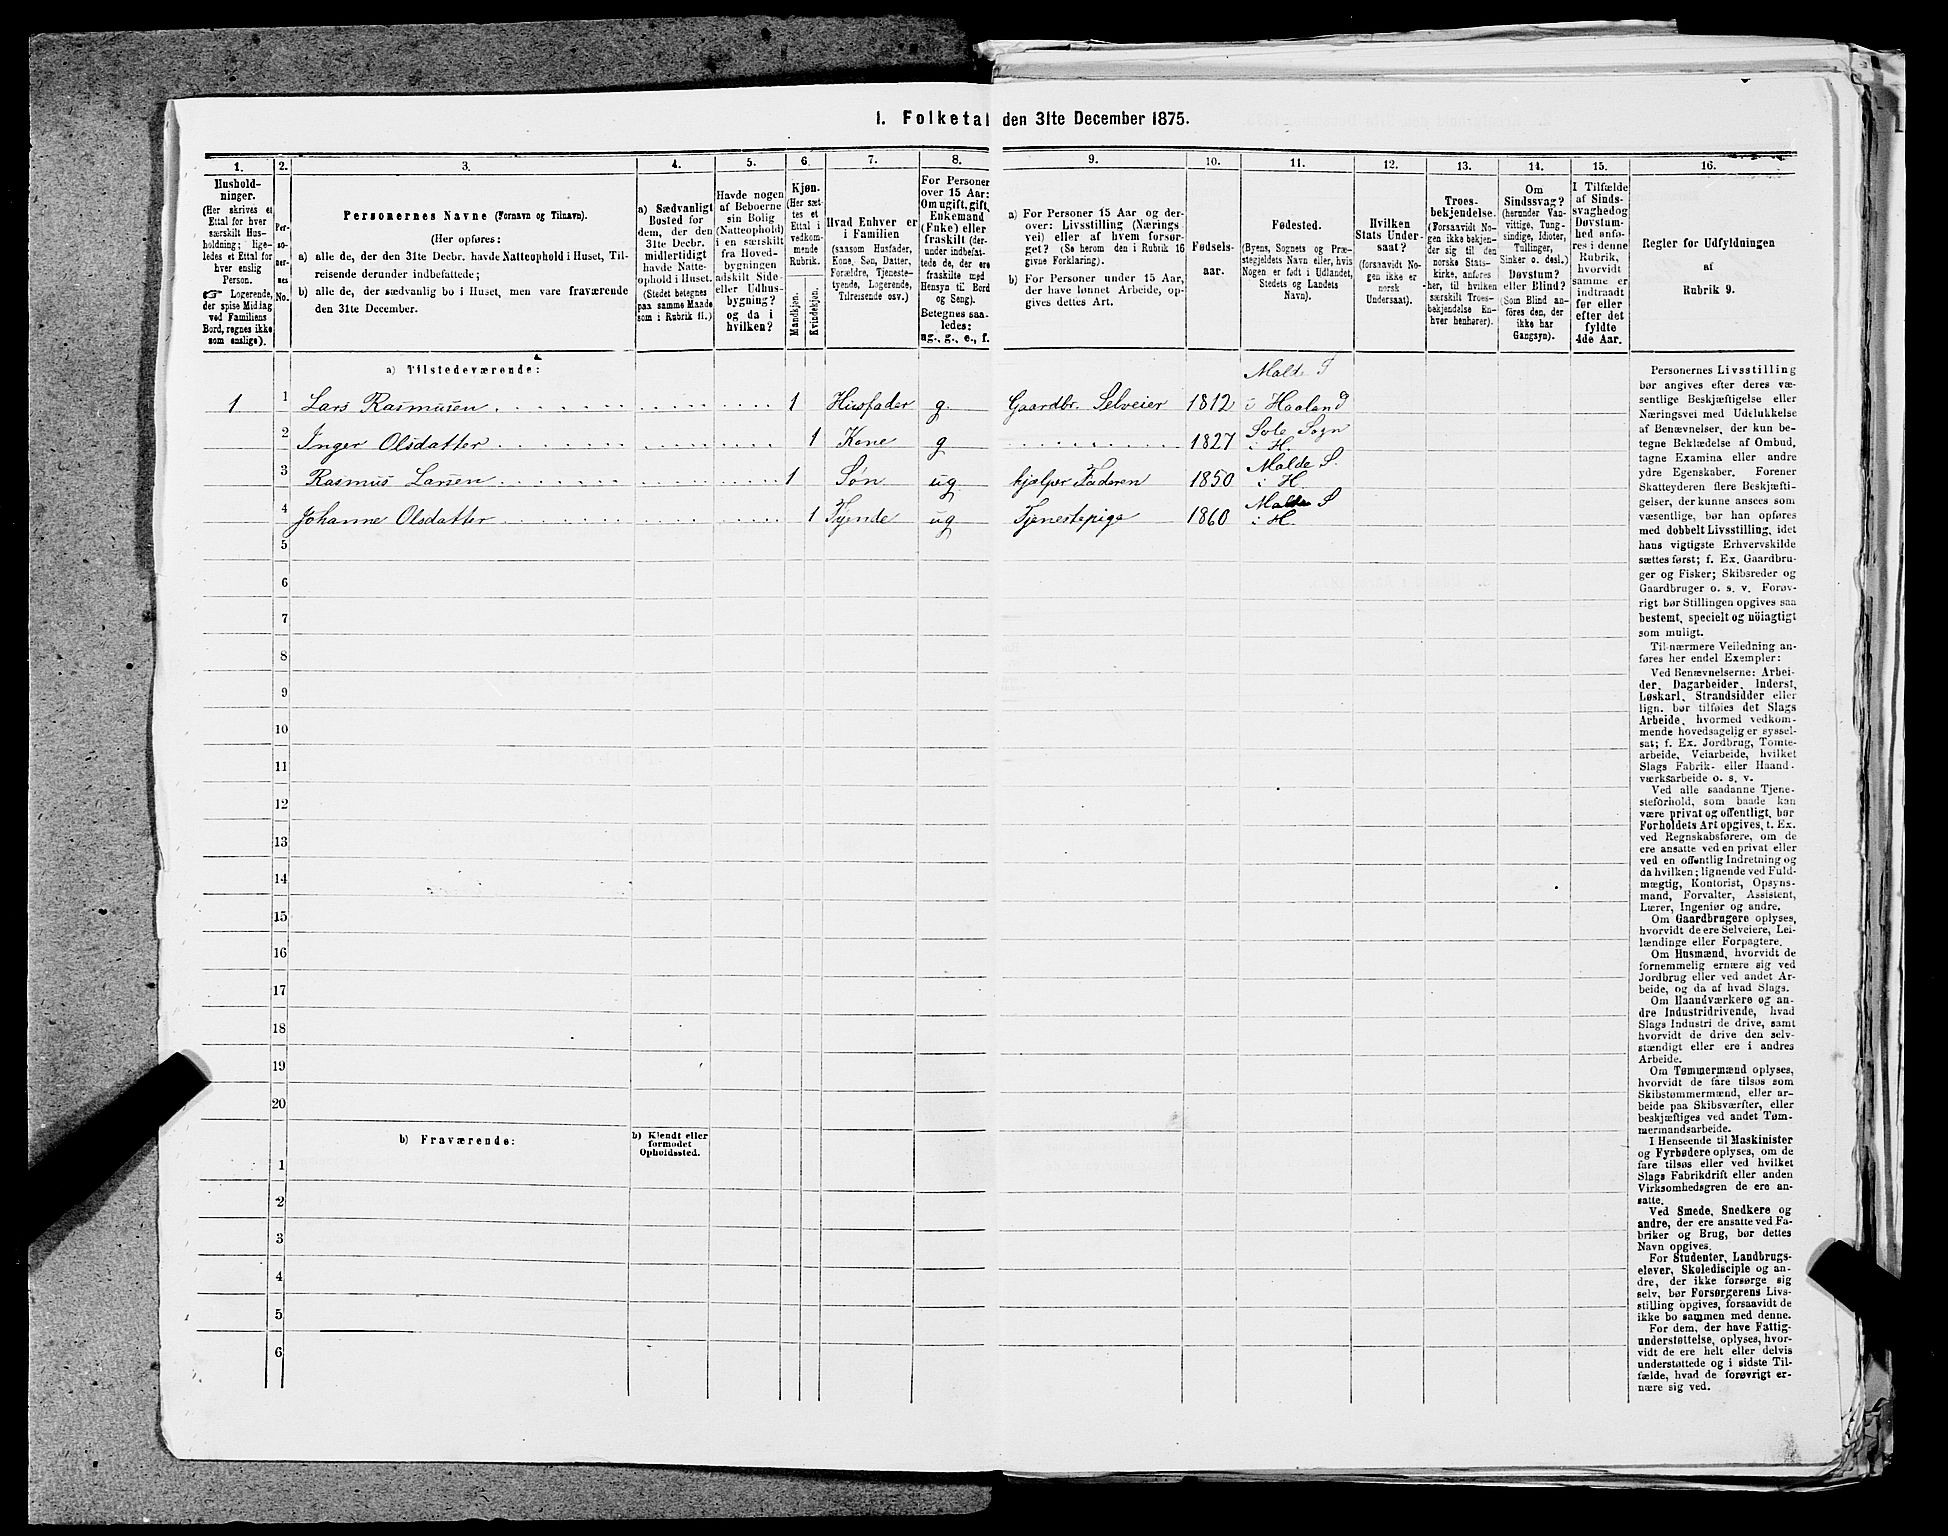 1. Folketal den 31te December 1875.
1. 2. 3. 4. 5. 6. 7. 8. 9. 10. 11. 12. 13. 14. 15. 16.
Hushold-
ninger.
(Her skrives et
Ettal for hver
særskilt Hus-
holdning; lige-
ledes et Ettal
for hver enslig
Person.
☞ Logerende,
der spise Middag
ved Familiens
Bord, regnes ikke
som enslige).
Per-
so-
ner-
nes
No.
Personernes Navne (Fornavn og Tilnavn).
(Her opføres:
a) alle de, der den 31te Decbr. havde Natteophold i Huset, Til-
reisende derunder indbefattede;
b) alle de, der sædvanlig bo i Huset, men vare fraværende
den 31te December.
a) Sædvanligt
Bosted for
dem, der den
31te Decbr.
midlertidigt
havde Natte-
ophold i Huset.
(Stedet betegnes
paa samme Maade
som i Rubrik 11.)
Havde nogen
af Beboerne
sin Bolig
(Natteophold)
i en særskilt
fra Hoved-
bygningen
adskilt Side-
eller Udhus-
bygning?
og da i
hvilken?
Kjøn.
(Her sæt-
tes et
Ettal i
vedkom-
mende
Rubrik.
Mandkjøn.
Kvindekjøn.
Hvad Enhver er
i Familien
(saasom Husfader,
Kone, Søn, Datter,
Forældre, Tjeneste-
tyende, Logerende,
Tilreisende osv.)
For Personer
over 15 Aar:
Om ugift, gift,
Enkemand
(Enke) eller
fraskilt (der-
under indbefat-
tede de, der ere
fraskilte med
Hensyn til Bord
og Seng).
Betegnes saa-
ledes:
ug., g., e., f.
a) For Personer 15 Aar og der-
over: Livsstilling (Nærings-
vei) eller af hvem forsør-
get? (Se herom den i Rubrik 16
givne Forklaring).
b) For Personer under 15 Aar,
der have lønnet Arbeide, op-
gives dettes Art.
Fødsels-
aar.
Fødested.
(Byens, Sognets og Præ-
stegjeldets Navn eller, hvis
Nogen er født i Udlandet,
Stedets og Landets
Navn).
Hvilken
Stats Under-
saat?
(forsaavidt No-
gen ikke er
norsk
Undersaat).
Troes-
bekjendelse.
(Forsaavidt No-
gen ikke bekjen-
der sig til den
norske Stats-
kirke, anføres
her, til hvilken
særskilt Troes-
bekjendelse En-
hver henhører).
Om
Sindssvag?
(herunder Van-
vittige, Tung-
sindige, Idioter,
Tullinger,
Sinker o. desl.)
Døvstum?
eller Blind?
(Som Blind an-
føres den, der
ikke har
Gangsyn).
I Tilfælde
af Sinds-
svaghed og
Døvstum-
hed anfø-
res i denne
Rubrik,
hvorvidt
samme er
indtraadt
før eller
efter det
fyldte
4de Aar.
Regler for Udfyldningen
af
Rubrik 9.
a) Tilstedeværende:
1 1 Lars Rasmusen 1 Husfader g. Gaardbr. Selveier 1812 Malde S i Haaland
2 Inger Olsdatter 1 Kone g 1827 Sole Sogn i H.
3 Rasmus Larsen 1 Søn ug hjelper Faderen 1850 Malde S. i H
4 Johanne Olsdatter 1 Tyende ug Tjenestepige 1860 Malde S i H.
5
6
7
8
9
10
11
12
13
14
15
16
17
18
19
20
b) Fraværende:
b) Kjendt eller
formodet
Opholdssted.
1
2
3
4
5
6
Personernes Livsstilling
bør angives efter deres væ-
sentlige Beskjæftigelse eller
Næringsvei med Udelukkelse
af Benævnelser, der kun be-
tegne Beklædelse af Ombud,
tagne Examina eller andre
ydre Egenskaber. Forener
Skatteyderen flere Beskjæfti-
gelser, der kunne ansees som
væsentlige, bør han opføres
med dobbelt Livsstilling, idet
hans vigtigste Erhvervskilde
sættes først; f. Ex. Gaardbru-
ger og Fisker; Skibsreder og
Gaardbruger o. s. v. Forøv-
rigt bør Stillingen opgives saa
bestemt, specielt og nöiagtigt
som muligt.
Til nærmere Veiledning an-
føres her endel Exempler:
Ved Benævnelserne: Arbei-
der, Dagarbeider, Inderst,
Løskarl, Strandsidder eller
lign. bør tilføies det Slags
Arbeide, hvormed vedkom-
mende hovedsagelig er syssel-
sat; f. Ex. Jordbrug, Tomte-
arbeide, Veiarbeide, hvilket
Slags Fabrik- eller Haand-
værksarbeide o. s. v.
Ved alle saadanne Tjene-
steforhold, som baade kan
være privat og offentligt, bør
Forholdets Art opgives, t. Ex.
ved Regnskabsførere, om de
ere ansatte ved en privat eller
ved en offentlig Indretning og
da hvilken; lignende ved Fuld-
mægtig, Kontorist, Opsyns-
mand, Forvalter, Assistent,
Lærer, Ingeniør og andre.
Om Gaardbrugere oplyses,
hvorvidt de ere Selveiere, Lei-
lændinge eller Forpagtere.
Om Husmænd, hvorvidt de
fornemmelig ernære sig ved
Jordbrug eller ved andet Ar-
beide, og da af hvad Slags.
Om Haandværkere og an-
dre Industridrivende, hvad
Slags Industri de drive, samt
hvorvidt de drive den selv-
stændigt eller ere i andres
Arbeide.
Om Tømmermænd oplyses,
hvorvidt de fare tilsøs som
Skibstømmermænd, eller ar-
beide paa Skibsværfter, eller
beskjæftiges ved andet Tøm-
mermandsarbeide.
I Henseende til Maskinister
og Fyrbødere oplyses, om de
fare tilsøs eller ved hvilket
Slags Fabrikdrift eller anden
Virksomhedsgren de ere an-
satte.
Ved Smede, Snedkere og
andre, der ere ansatte ved Fa-
briker og Brug, bør dettes
Navn opgives.
For Studenter, Landbrugs-
elever, Skoledisciple og an-
dre, der ikke forsørge sig
selv, bør Forsørgerens Livs-
stilling opgives, forsaavidt de
ikke bo sammen med denne.
For dem, der have Fattig-
understøttelse, oplyses, hvor-
vidt de ere helt eller delvis
understøttede og i sidste Til-
fælde, hvad de forøvrigt er-
nære sig ved.